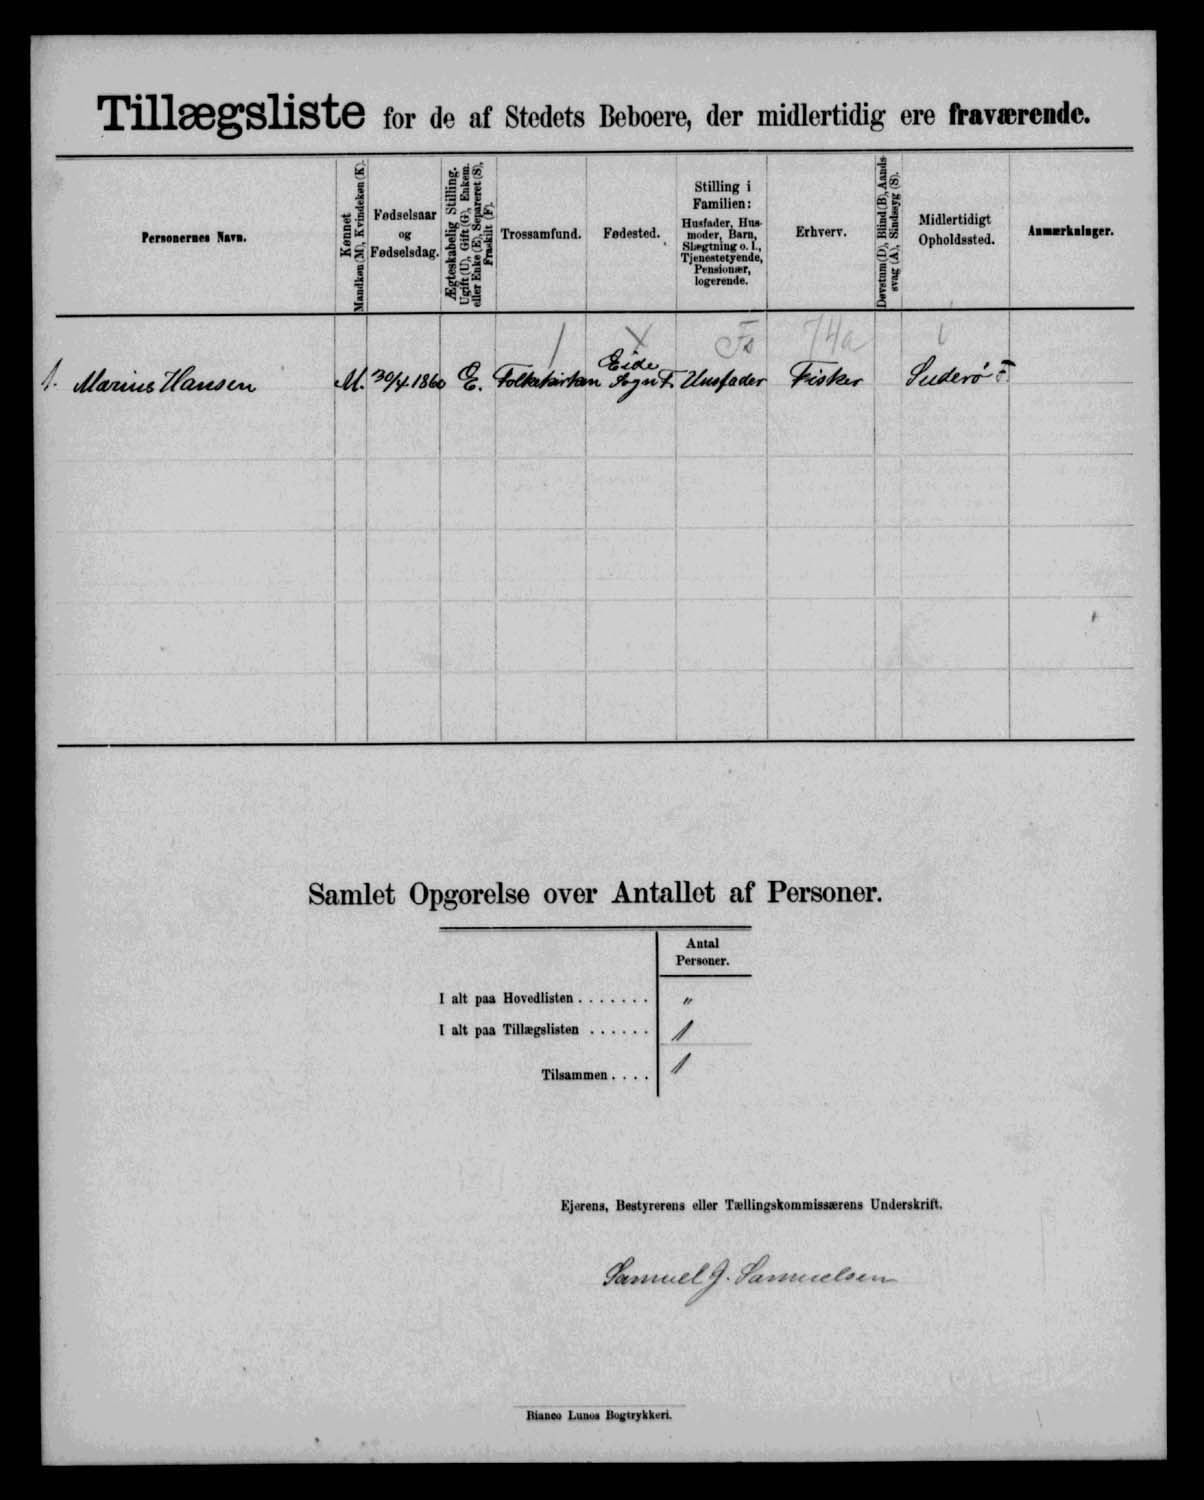 Tillægsliste for de af Stedets Beboere, der midlertidig ere fraværende.
Personernes Navn.
Kønnet
Mandkøn (M), Kvindekøn (K).
Fødselsaar
og
Fødselsdag.
Ægteskabelig Stilling.
Ugift (U), Gift (G), Enkem.
eller Enke (E), Separeret (S),
Fraskilt (F).
Trossamfund.
Fødested.
Stilling i
Familien:
Husfader, Hus-
moder, Barn,
Slægtning o. l.,
Tjenestetyende,
Pensionær,
logerende.
Erhverv.
Døvstum (D), Blind (B), Aands-
svag (A), Sindssyg (S).
Midlertidigt
Opholdssted.
Anmærkninger.
1 x Fs 74a
1. Marius Hansen M. 30/4 1860 E. Folkekirken Eide Sogn F. Husfader Fisker Suderø F.
Samlet Opgørelse over Antallet af Personer.
Antal
Personer.
I alt paa Hovedlisten . . . . . . . "
I alt paa Tillægslisten . . . . . . 1
Tilsammen . . . . 1
Ejerens, Bestyrerens eller Tællingskommissærens Underskrift.
Samuel J. Samuelsen
Bianco Lunos Bogtrykkeri.